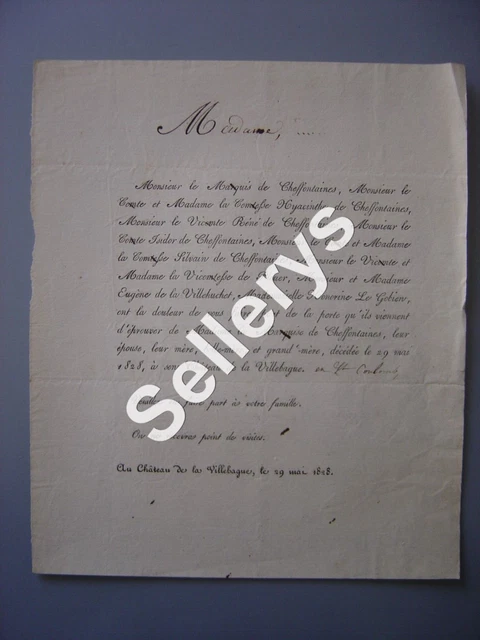 Madame,
Monsieur le Marquis de Cheffontaines, Monsieur le
Comte et Madame la Comtesse Hyacinthe de Cheffontaines,
Monsieur le Vicomte René de Monsieur le
Comte Isidor de Cheffontaines, et Madame
la Comtesse Silvain de Monsieur le Vicomte et
Madame la Vicomtesse de Monsieur et Madame
Eugène de la Villehuchet, Le Gobien,
ont la douleur de vous de la perte qu'ils viennent
d'éprouver de Madame de Cheffontaines, leur
épouse, leur mère, et grand'mère, décédée le 29 mai
1828, à son de la Villebague. en
part à votre famille.
On point de visites.
Au Château de la Villebague, le 29 mai 1828.
Sellerys